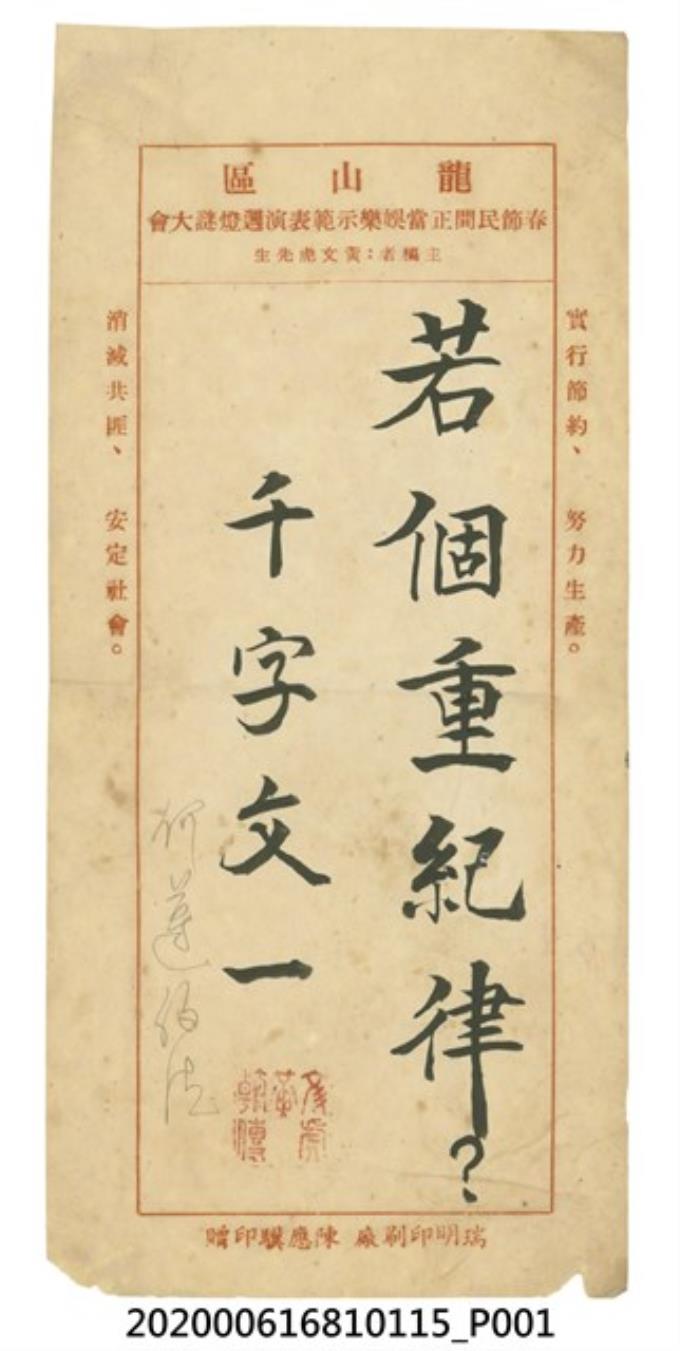 龍山區
春節民間正當娛樂示範表演週燈謎大會
主編者：黃文虎先生
實行節約、 努力生產。
若個重紀律？
千字文一
何遵約法
消滅共匪、 安定社會。
瑞明印刷廠 陳應印贈
202000616810115_P001